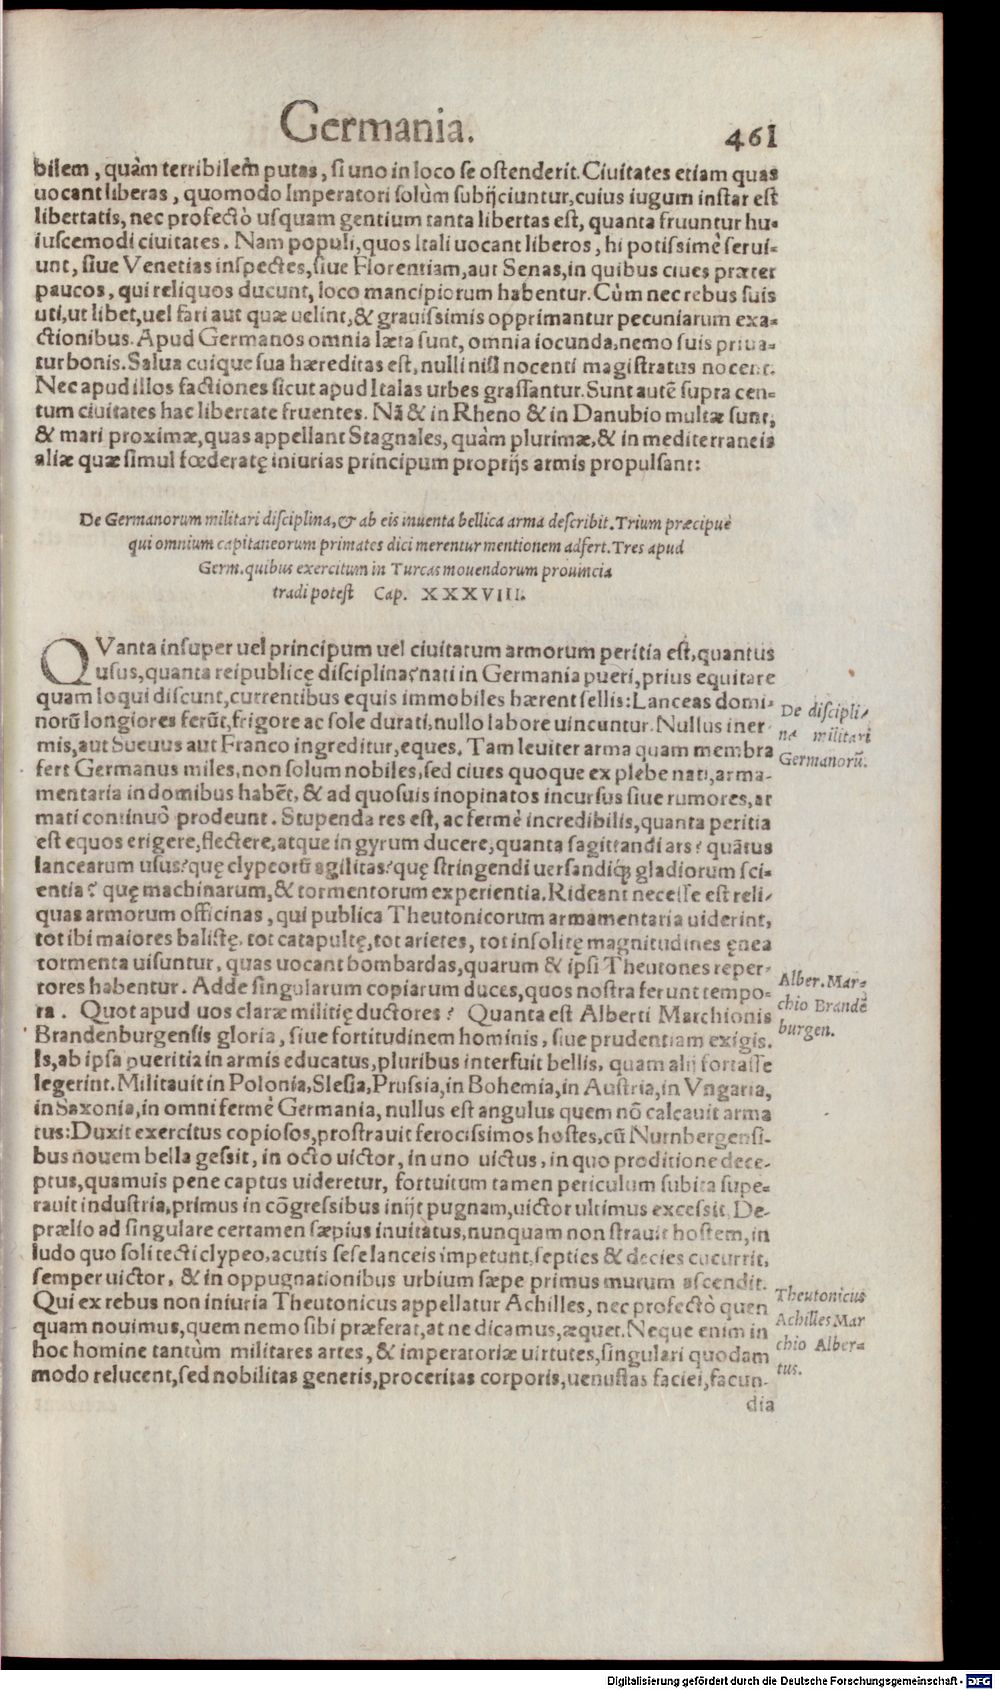 Germania.
461
bilem, quàm terribilem̀ putas, si uno in loco se ostenderit. Ciuitates etiam quas
uocant liberas, quomodo Imperatori solùm subijciuntur, cuius iugum instar est
libertatis, nec profectò usquam gentium tanta libertas est, quanta fruuntur hu-
iuscemodi ciuitates. Nam populi, quos Itali uocant liberos, hi potissimè serui-
unt, siue Venetias inspectes, siue Florentiam, aut Senas, in quibus ciues præter
paucos, qui reliquos ducunt, loco mancipiorum habentur. Cùm nec rebus suis
uti, ut libet, uel fari aut quæ uelint, & grauissimis opprimantur pecuniarum exa-
ctionibus. Apud Germanos omnia læta sunt, omnia iocunda, nemo suis priua-
tur bonis. Salua cuique sua hæreditas est, nulli nisi nocenti magistratus nocent.
Nec apud illos factiones sicut apud Italas urbes grassantur. Sunt autẽ supra cen-
tum ciuitates hac libertate fruentes. Nã & in Rheno & in Danubio multæ sunt,
& mari proximæ, quas appellant Stagnales, quàm plurimæ, & in mediterraneis
aliæ quæ simul fœderatę iniurias principum proprijs armis propulsant:
De Germanorum militari disciplina, & ab eis inuenta bellica arma describit. Trium præcipuè
qui omnium capitaneorum primates dici merentur mentionem adfert. Tres apud
Germ. quibus exercitum in Turcas mouendorum prouincia
tradi potest Cap. XXXVIII.
QVanta insuper uel principum uel ciuitatum armorum peritia est, quantus
usus, quanta reipublicę disciplina? nati in Germania pueri, prius equitare
quam loqui discunt, currentibus equis immobiles hærent sellis: Lanceas domi-
norũ longiores ferũt, frigore ac sole durati, nullo labore uincuntur. Nullus iner
mis, aut Sueuus aut Franco ingreditur, eques. Tam leuiter arma quam membra
fert Germanus miles, non solum nobiles, sed ciues quoque ex plebe nati, arma-
mentaria in domibus habẽt, & ad quosuis inopinatos incursus siue rumores, ar
mati continuò prodeunt. Stupenda res est, ac fermè incredibilis, quanta peritia
est equos erigere, flectere, atque in gyrum ducere, quanta sagittandi ars? quãtus
lancearum usus? quę clypeorũ agilitas? quę stringendi uersandiq; gladiorum sci-
entia? quę machinarum, & tormentorum experientia. Rideant necesse est reli-
quas armorum officinas, qui publica Theutonicorum armamentaria uiderint,
tot ibi maiores balistę, tot catapultę, tot arietes, tot insolitę magnitudines ęnea
tormenta uisuntur, quas uocant bombardas, quarum & ipsi Theutones reper-
tores habentur. Adde singularum copiarum duces, quos nostra ferunt tempo-
ra. Quot apud uos claræ militię ductores? Quanta est Alberti Marchionis
Brandenburgensis gloria, siue fortitudinem hominis, siue prudentiam exigis.
Is, ab ipsa pueritia in armis educatus, pluribus interfuit bellis, quam alij fortasse
legerint. Militauit in Polonia, Slesia, Prussia, in Bohemia, in Austria, in Vngaria,
in Saxonia, in omni fermè Germania, nullus est angulus quem nõ calcauit arma
tus: Duxit exercitus copiosos, prostrauit ferocissimos hostes, cũ Nurnbergensi-
bus nouem bella gessit, in octo uictor, in uno uictus, in quo proditione dece-
ptus, quamuis pene captus uideretur, fortuitum tamen periculum subita supe-
rauit industria, primus in cõgressibus inijt pugnam, uictor ultimus excessit. De-
prælio ad singulare certamen sæpius inuitatus, nunquam non strauit hostem, in
ludo quo soli tecti clypeo, acutis sese lanceis impetunt, septies & decies cucurrit,
semper uictor, & in oppugnationibus urbium sæpe primus murum ascendit.
Qui ex rebus non iniuria Theutonicus appellatur Achilles, nec profectò quen
quam nouimus, quem nemo sibi præferat, at ne dicamus, æquet. Neque enim in
hoc homine tantùm militares artes, & imperatoriæ uirtutes, singulari quodam
modo relucent, sed nobilitas generis, proceritas corporis, uenustas faciei, facun-
dia
De discipli-
na militari
Germanorũ.
Alber. Mar-
chio Brandē
burgen.
Theutonicus
Achilles Mar
chio Alber-
tus.
Digitalisierung gefördert durch die Deutsche Forschungsgemeinschaft - DFG